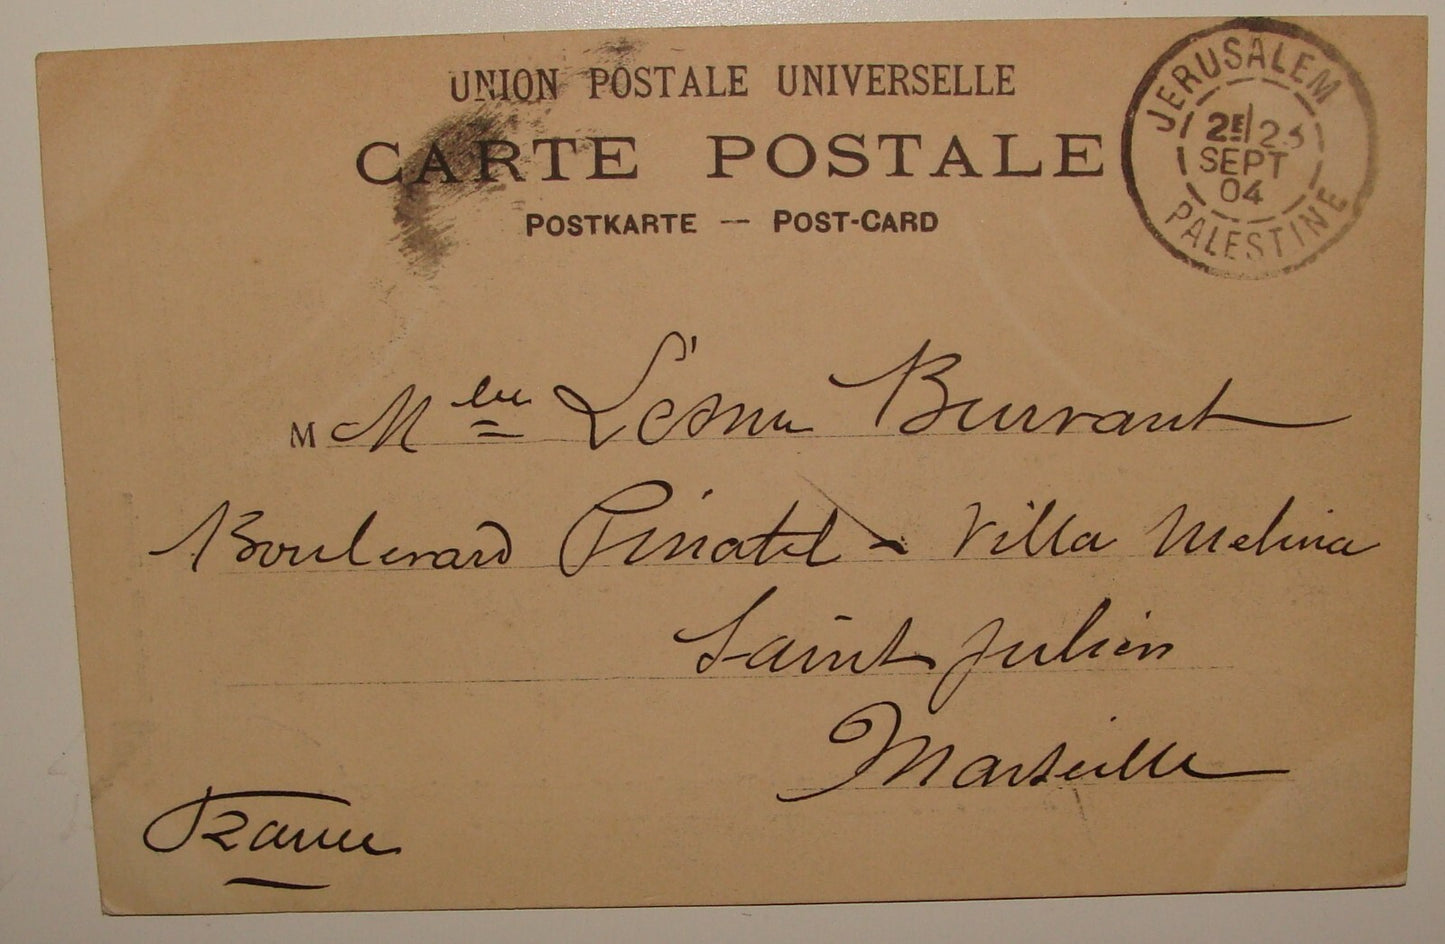 UNION POSTALE UNIVERSELLE
CARTE POSTALE
POSTKARTE — POST-CARD
JERUSALEM
2E/25
SEPT
04
PALESTINE
M Mlle Burvant
Boulevard Pinatel - Villa Melina
Saint Julien
Marseille
France